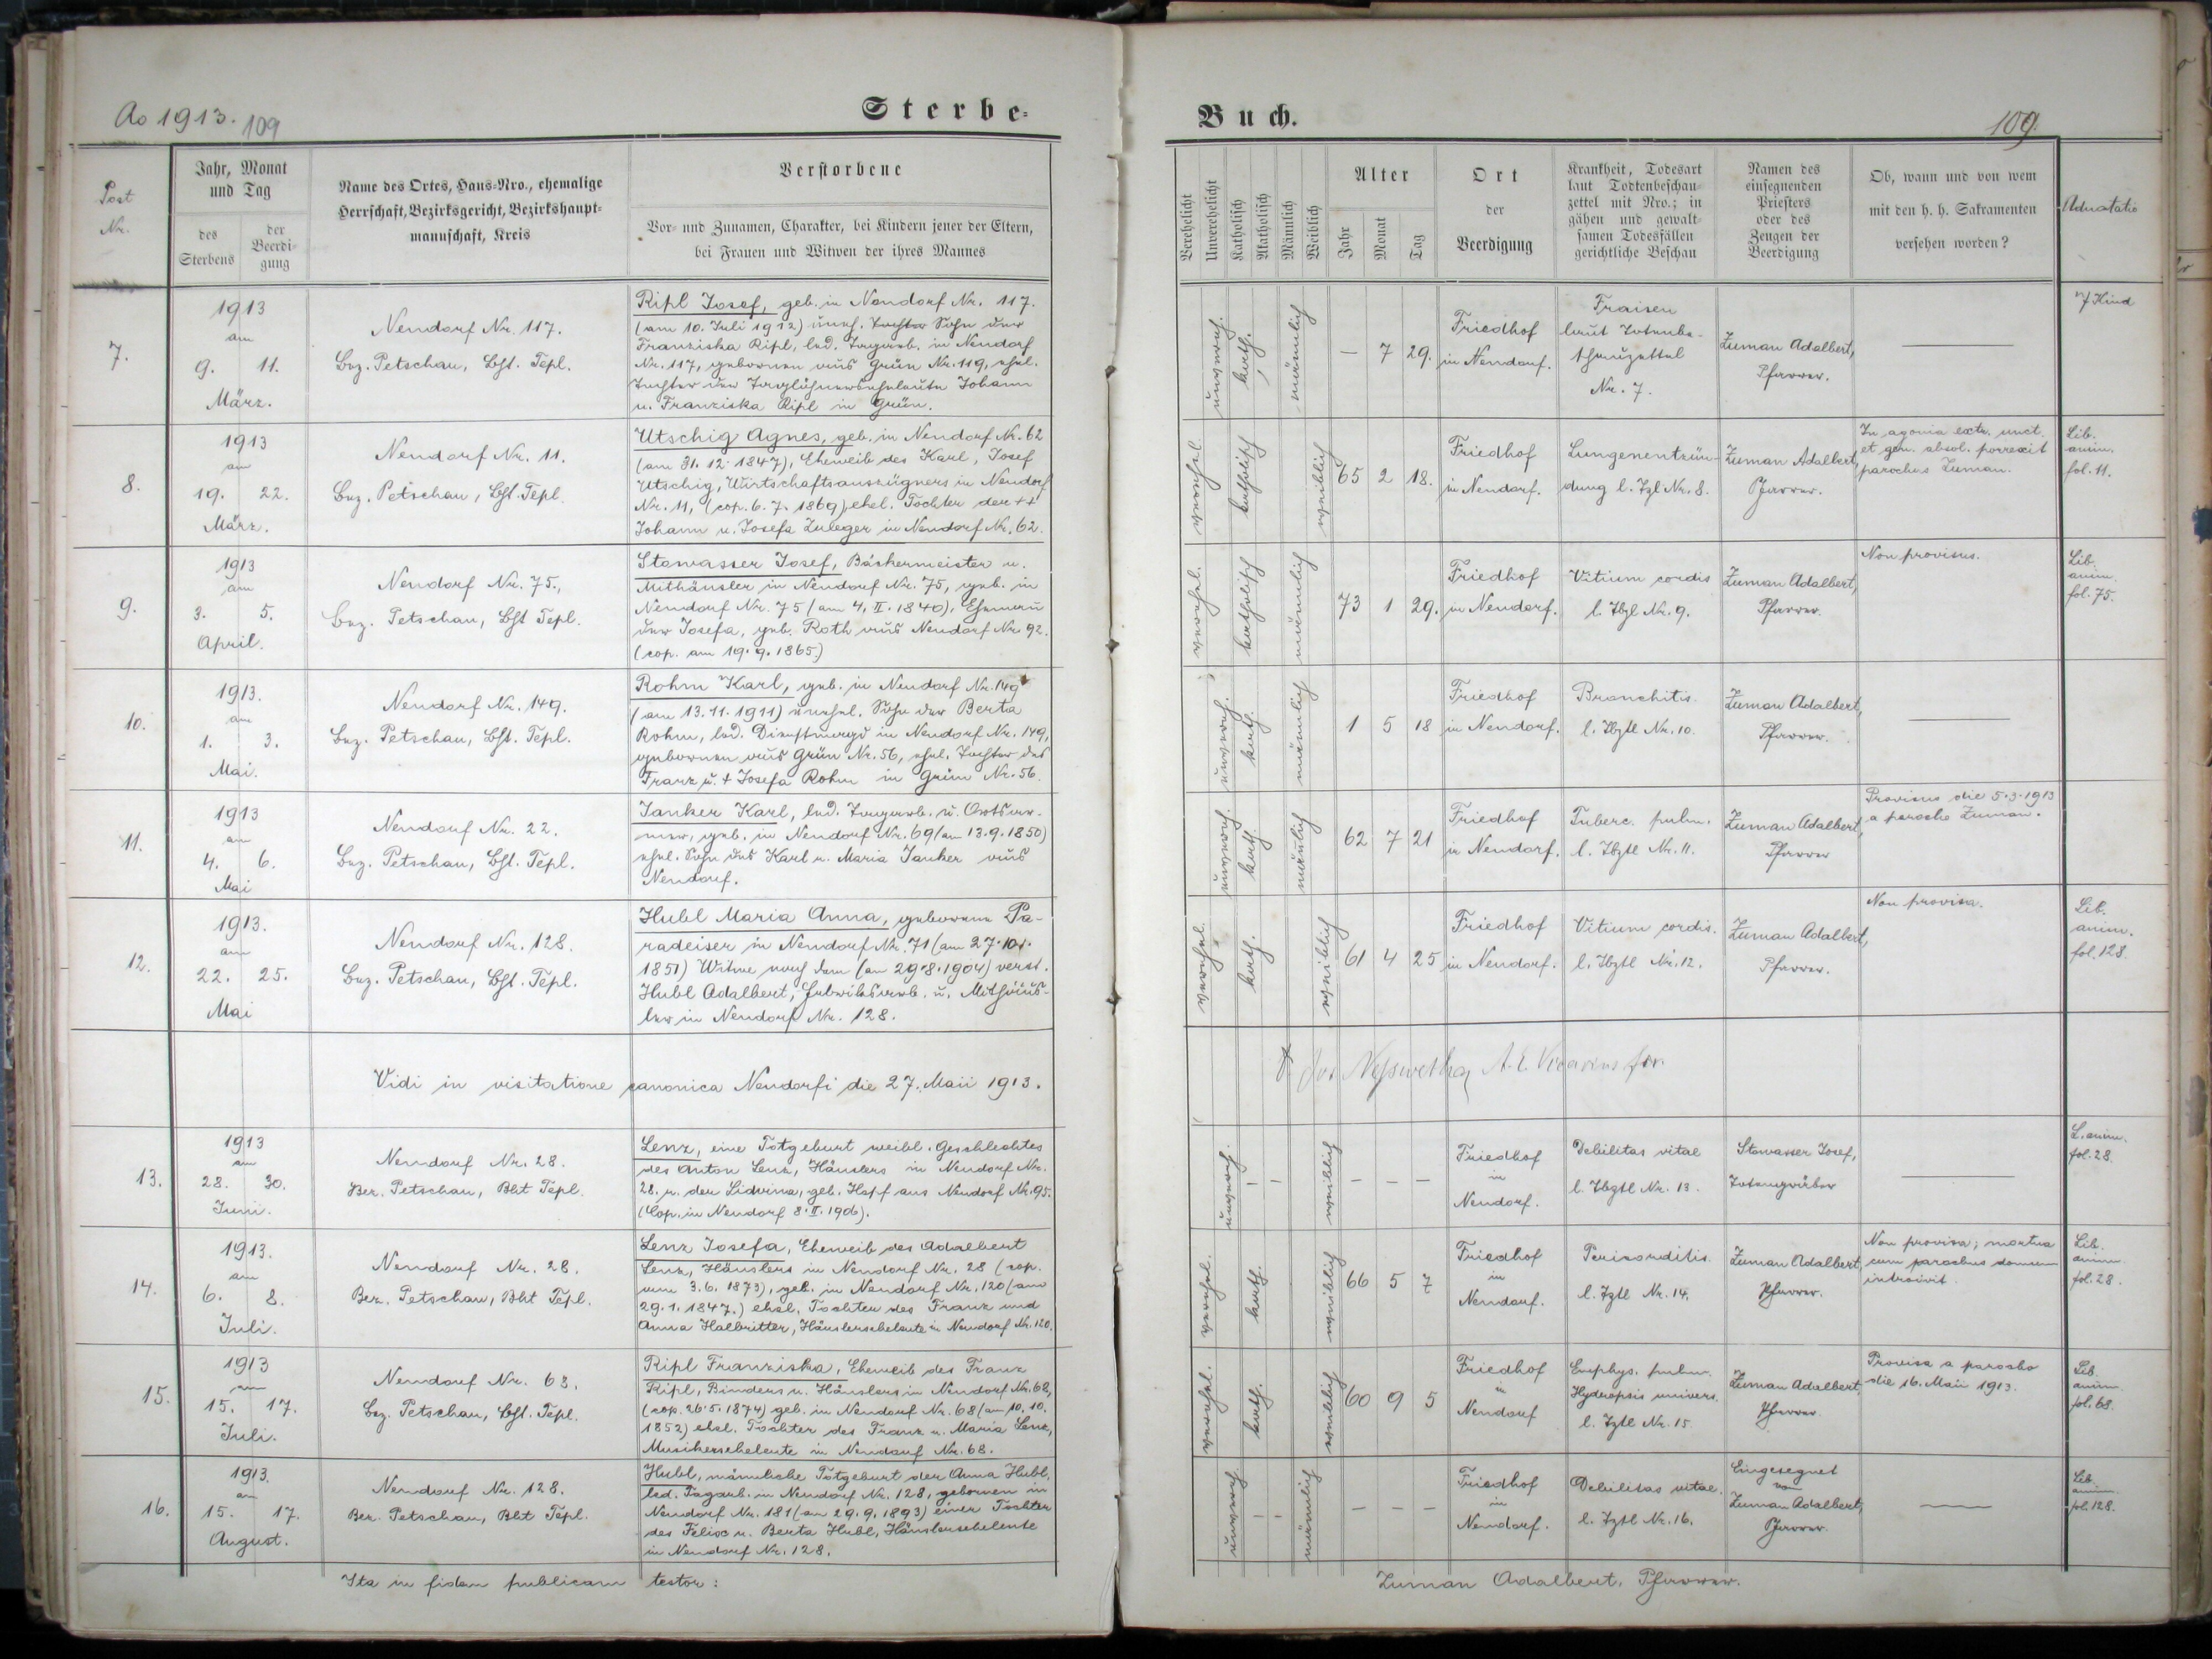 Ao 1913. 109
Sterbe-
Post Nr.
Jahr, Monat und Tag
des Sterbens
der Beerdi-gung
Name des Ortes, Haus-Nro., ehemalige
Herrschaft, Bezirksgericht, Bezirkshaupt-
mannschaft, Kreis
Verstorbene
Vor- und Zunamen, Charakter, bei Kindern jener der Eltern,
bei Frauen und Witwen der ihres Mannes
7.
1913
am
9. 11.
März.
Neudorf Nr. 117.
Bez. Petschau, Bht. Tepl.
Ripl Josef, geb. in Neudorf Nr. 117.
(am 10. Juli 1912) uneh. Tochter Sohn der
Franziska Ripl, led. Tagarb. in Neudorf
Nr. 117, geboren aus Grün Nr. 119, ehel.
Tochter der Taglöhnerseheleute Johann
u. Franziska Ripl in Grün.
8.
1913
am
19. 22.
März.
Neudorf Nr. 11.
Bez. Petschau, Bht. Tepl.
Utschig Agnes, geb. in Neudorf Nr. 62
(am 31. 12. 1847), Eheweib des Karl, Josef
Utschig, Wirtschaftsauszügners in Neudorf
Nr. 11, (cop. 6. 7. 1869) ehel. Tochter der ++
Johann u. Josefa Zuleger in Neudorf Nr. 62.
9.
1913
am
3. 5.
April.
Neudorf Nr. 75.,
Bez. Petschau, Bht Tepl.
Stowasser Josef, Bäckermeister u.
Mithäusler in Neudorf Nr. 75, geb. in
Neudorf Nr. 75 (am 4. II. 1840), Ehemann
der Josefa, geb. Roth aus Neudorf Nr. 92.
(cop. am 19. 9. 1865)
10.
1913.
am
1. 3.
Mai.
Neudorf Nr. 149.
Bez. Petschau, Bht. Tepl.
Rohm Karl, geb. in Neudorf Nr. 149
(am 13. 11. 1911) unehel. Sohn der Berta
Rohm, led. Dienstmagd in Neudorf Nr. 149,
geboren aus Grün Nr. 56, ehel. Tochter des
Franz u. + Josefa Rohm in Grün Nr. 56.
11.
1913
am
4. 6.
Mai
Neudorf Nr. 22.
Bez. Petschau, Bht. Tepl.
Janker Karl, led. Tagarb. u. Ortsar-
mer, geb. in Neudorf Nr. 69 (am 13. 9. 1850)
ehel. Sohn des Karl u. Maria Janker aus
Neudorf.
12.
1913.
am
22. 25.
Mai
Neudorf Nr. 128.
Bez. Petschau, Bht. Tepl.
Hubl Maria Anna, geborene Pa-
radeiser in Neudorf Nr. 71 (am 27. 10.
1851) Witwe nach dem (am 29. 8. 1904) verst.
Hubl Adalbert, Fabriksarb. u. Mithäus-
ler in Neudorf Nr. 128.
Vidi in visitatione canonica Neudorfi die 27. Maii 1913.
13.
1913
am
28. 30.
Juni.
Neudorf Nr. 28.
Bez. Petschau, Bht Tepl.
Lenz, eine Totgeburt weibl. Geschlechtes
des Anton Lenz, Häuslers in Neudorf Nr.
28. u. der Lidvina, geb. Hopf aus Neudorf Nr. 95.
(Cop. in Neudorf 8. II. 1906).
14.
1913.
am
6. 8.
Juli.
Neudorf Nr. 28.
Bez. Petschau, Bht Tepl.
Lenz Josefa, Eheweib des Adalbert
Lenz, Häuslers in Neudorf Nr. 28 (cop.
am 3. 6. 1873), geb. in Neudorf Nr. 120 (am
29. 1. 1847.) ehel. Tochter des Franz und
Anna Halbritter, Häuslerseheleute in Neudorf Nr. 120.
15.
1913
am
15. 17.
Juli.
Neudorf Nr. 68.
Bez. Petschau, Bht. Tepl.
Ripl Franziska, Eheweib des Franz
Ripl, Binders u. Häuslers in Neudorf Nr. 68,
(cop. 26. 5. 1874) geb. in Neudorf Nr. 68 (am 10. 10.
1852) ehel. Tochter des Franz u. Maria Lenz,
Musikerseheleute in Neudorf Nr. 68.
16.
1913.
am
15. 17.
August.
Neudorf Nr. 128.
Bez. Petschau, Bht Tepl.
Hubl, männliche Totgeburt der Anna Hubl,
led. Tagarb. in Neudorf Nr. 128, geboren in
Neudorf Nr. 181 (am 29. 9. 1893) einer Tochter
des Felix u. Berta Hubl, Häuslerseheleute
in Neudorf Nr. 128.
Ita in fidem publicam testor:
Buch.
109.
Verehelicht
Unverehelicht
Katholisch
Akatholisch
Männlich
Weiblich
Alter
Jahr
Monat
Tag
Ort
der
Beerdigung
Krankheit, Todesart
laut Todtenbeschau-
zettel mit Nro.; in
gähen und gewalt-
samen Todesfällen
gerichtliche Beschau
Namen des
einsegnenden
Priesters
oder des
Zeugen der
Beerdigung
Ob, wann und von wem
mit den h. h. Sakramenten
versehen worden?
Adnotatio
unvereh. kath. männlich
— 7 29.
Friedhof
in Neudorf.
Fraisen
laut Totenbe-
schauzettel
Nr. 7.
Zuman Adalbert,
Pfarrer.
—
Kind
verehel. katholisch weiblich
65 2 18.
Friedhof
in Neudorf.
Lungenentzün-
dung l. Tzl Nr. 8.
Zuman Adalbert,
Pfarrer.
In agonia extr. unct.
et gen. absol. porrexit
parochus Zuman.
Lib.
anim.
fol. 11.
verehel. katholisch männlich
73 1 29.
Friedhof
in Neudorf.
Vitium cordis
l. Tbzl Nr. 9.
Zuman Adalbert,
Pfarrer.
Non provisus.
Lib.
anim.
fol. 75.
unvereh. kath. männlich
1 5 18
Friedhof
in Neudorf.
Bronchitis.
l. Tbztl Nr. 10.
Zuman Adalbert,
Pfarrer.
—
unvereh. kath. männlich
62 7 21
Friedhof
in Neudorf.
Tuberc. pulm.
l. Tbztl Nr. 11.
Zuman Adalbert,
Pfarrer
Provisus die 5. 3. 1913
a parocho Zuman.
verehel. kath. weiblich
61 4 25
Friedhof
in Neudorf.
Vitium cordis.
l. Tbztl Nr. 12.
Zuman Adalbert,
Pfarrer.
Non provisa.
Lib.
anim.
fol. 128.
unvereh. — — weiblich
— — —
Friedhof
in
Neudorf.
Debilitas vitae
l. Tbztl Nr. 13.
Stowasser Josef,
Totengräber
—
L. anim.
fol. 28.
verehel. kath. weiblich
66 5 7
Friedhof
in
Neudorf.
Pericarditis.
l. Tztl Nr. 14.
Zuman Adalbert,
Pfarrer.
Non provisa; mortua
cum parochus domum
introivit.
Lib.
anim.
fol. 28.
verehel. kath. weiblich
60 9 5
Friedhof
in
Neudorf
Emphys. pulm.
Hydropsis univers.
l. Tztl Nr. 15.
Zuman Adalbert,
Pfarrer.
Provisa a parocho
die 16. Maii 1913.
Lib.
anim.
fol. 68.
unvereh. — — männlich
— — —
Friedhof
in
Neudorf.
Debilitas vitae.
l. Tztl Nr. 16.
Eingesegnet
von
Zuman Adalbert,
Pfarrer.
—
Lib.
anim.
fol. 128.
Zuman Adalbert, Pfarrer.